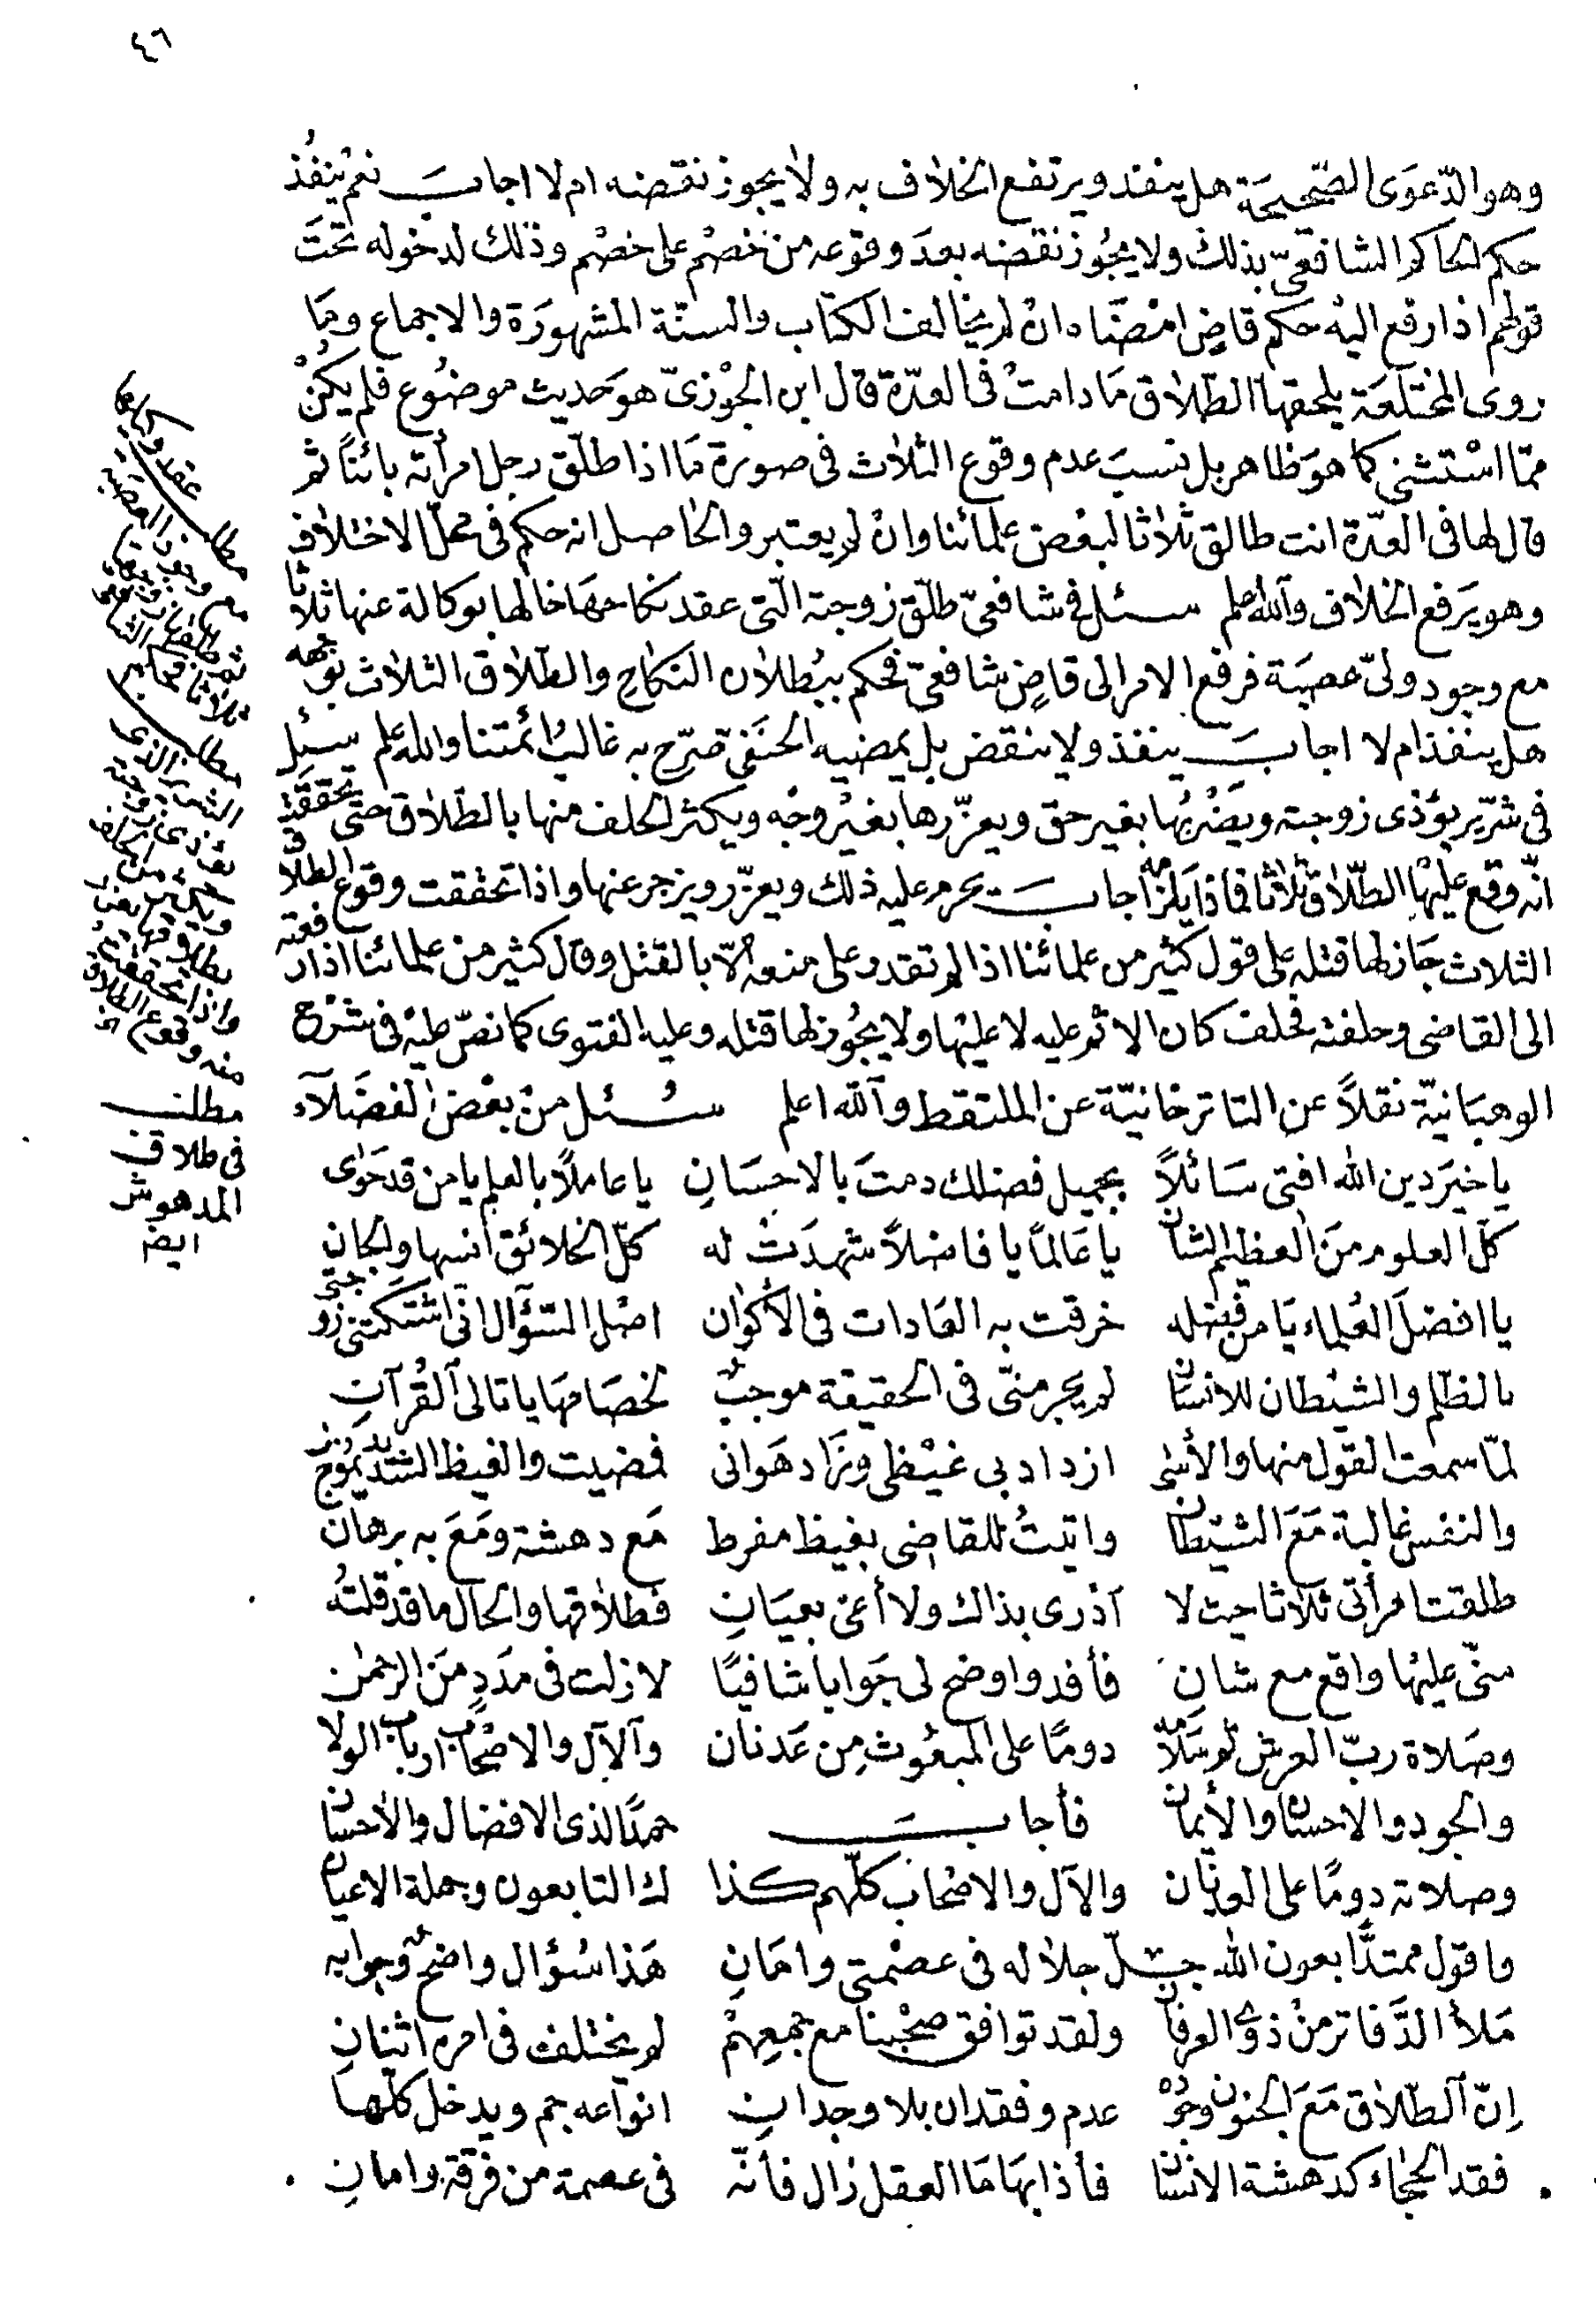 ٤٦
وهو الدّعوَى الصّحيحَة هل ينفذ ويرتفع الخلاف به ولا يجوز نقضه ام لا اجابَ نعم ينفُذ
حكم الحاكم الشافعىّ بذلك ولا يجُوز نقضه بعدَ وقوعه من خصْم على خصْم وذلك لدخوله تحْتَ
قولهم اذا رفع اليْه حكم قاضٍ امْضَاه انْ لم يخالف الكتاب والسنّة المشهورَة والاجماع ومَا
روى المختلعَة يلحقها الطّلاق مَا دامتْ فى العدّة قال ابن الجوْزىّ هوَ حَديث موضُوع فلم يكُنْ
ممّا اسْتثنى كما هوَ ظاهر بل نسبَ عدم وقوع الثلاث فى صورة مَا اذا طلّق رجل امرأته بائنًا ثم
قال لها فى العدّة انت طالق ثلاثا لبعْض علمائنا وانْ لم يعتبر والحاصل انه حكم فى محلّ الاختلاف
وهو يَرفع الخلاف والله اعلم سئل فى شافعىّ طلّق زوجته الّتى عقد نكاحهَا خالها بوكالة عنها ثلاثا
مع وجود ولىّ عصبَة فرفع الامر الى قاضٍ شافعىّ فحكم ببُطلان النكاح والطّلاق الثلاث بوجهه
هل ينفذ ام لا اجابَ ينفذ ولا ينقض بل يمضيه الحنَفى صَرّح به غالبُ ائمتنا والله اعلم سئل
فى شرّير يؤذى زوجته ويضْرُبُها بغير حق ويعزّرها بغيْر وجْه ويكثر الحلف منها بالطّلاق حتّى تحققت
انّه وقع عليْها الطّلاق ثلاثا فماذا يلزمه اجابَ يحرم عليه ذلك ويعزّر ويزجر عنها واذا تحققت وقوع الطلاق
الثلاث جَاز لها قتله على قول كثير من علمائنا اذا لم تقدر على منعه الّا بالقتل وقال كثير من علمائنا اذا رافعته
الى القاضى وحلفته فحلف كان الاثم عليه لا عليْها ولا يجُوز لها قتله وعليه الفتوى كما نصّ عليْه فى شرْح
الوهبَانيّة نقلاً عن التاترخانيّة عن الملتقط والله اعلم سُئل منْ بعْض الفضَلآء
يا خيَر دين الله افتى سَائلاً بجميل فضلك دمتَ بالاحسَانِ يا عاملاً بالعلم يا من قد حَوٰى
كلّ العلوم منَ العظيم الشان يا عَالمًا يا فاضلاً شهدَتْ له كلّ الخلائق انسها والجانِ
يا افضلَ العُلماء يَا من فضله خرقت به العَادات فى الأكوٰان اصْل السّؤال انّى اشتكتنى زوجتى
بالظلم والشيْطان للانسان لم يجر منّى فى الحقيقة موجبٌ لخصَامهَا يا تالىَ القُرآنِ
لمّا سمعت القول منها والأسٰى ازداد بى غيْظى وزَاد هَوانى فمضيت والغيظ الشديد يموج بى
والنفس غالبة مَعَ الشيْطان واتيتُ للقاضى بغيظ مفرط مَع دهشة ومَعَ به برهَان
طلقت امرأتى ثلاثا حيث لا آذرى بذاك ولا أعى بعيَانِ فطلاقها والحال ما قد قلتُه
منّى عليْها واقع مع شانِ فأفد واوضح لى جَوابا شافيًا لا زلت فى مدَدٍ منَ الرحمٰن
وصَلاة ربّ العرش ثم سَلامه دومًا على المبعُوث مِن عَدنان والآل والاصْحاب ارباب الولا
والجود والاحسان والأيمان فأجابَ حمدًا لذى الافضال والاحسان
وصلاته دومًا على العدنان والآل والاصْحاب كلّهم كذا لك التابعون وجملة الاعيان
واقول ممتدًّا بعون الله جلّ جلاله فى عصْمتى وامَانِ هَذا سُؤال واضحٌ وجوابه
مَلأ الدَّفاتر منْ ذوى العرفان ولقد توافق صحْبنا مع جمعِهمْ لم يختلف فى امره اثنانِ
اِنّ الطّلاق مَعَ الجنون وجودُه عدم وفقدان بلا وجدان انوٰاعه جم ويدخل كلّها
فقد الحجٰاء كدهشة الانسان فأذا بهَا مَا العقل زال فأنّه فى عصمة من فرقة وامانِ
مطلب
عقد وكيلها
مع وجود العصبة
ثم طلقها
ثلاثا
مطلب
الشرير الذى
يؤذى زوجته
واذا تحققت
وقوع الطلاق
مطلب
فى طلاق
المدهوش
ايضا